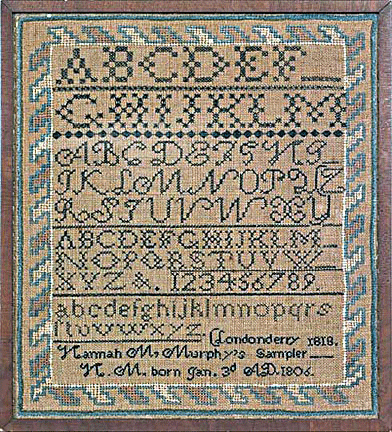 ABCDEF
GHIJKLM
ABCDEFGHI
JKLMNOPQ
RSTUVWXY
ABCDEFGHIJKLM
NOPQRSTUVW
XYZ&. 123456789.
abcdefghijklmnopqrs
tuvwxyz
Londonderry 1818.
Hannah M. Murphy's Sampler
H. M. born Jan. 3d A.D. 1806.